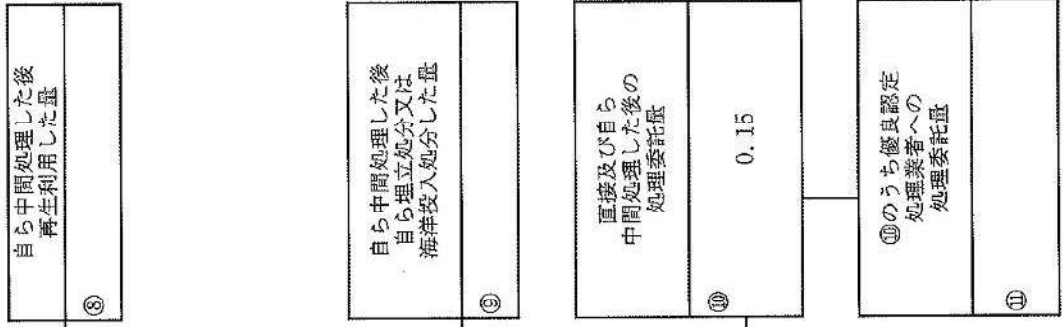 自ら中間処理した後
再生利用した量
⑧
自ら中間処理した後
自ら埋立処分又は
海洋投入処分した量
⑨
直接及び自ら
中間処理した後の
処理委託量
⑩
0.15
⑩のうち優良認定
処理業者への
処理委託量
⑪